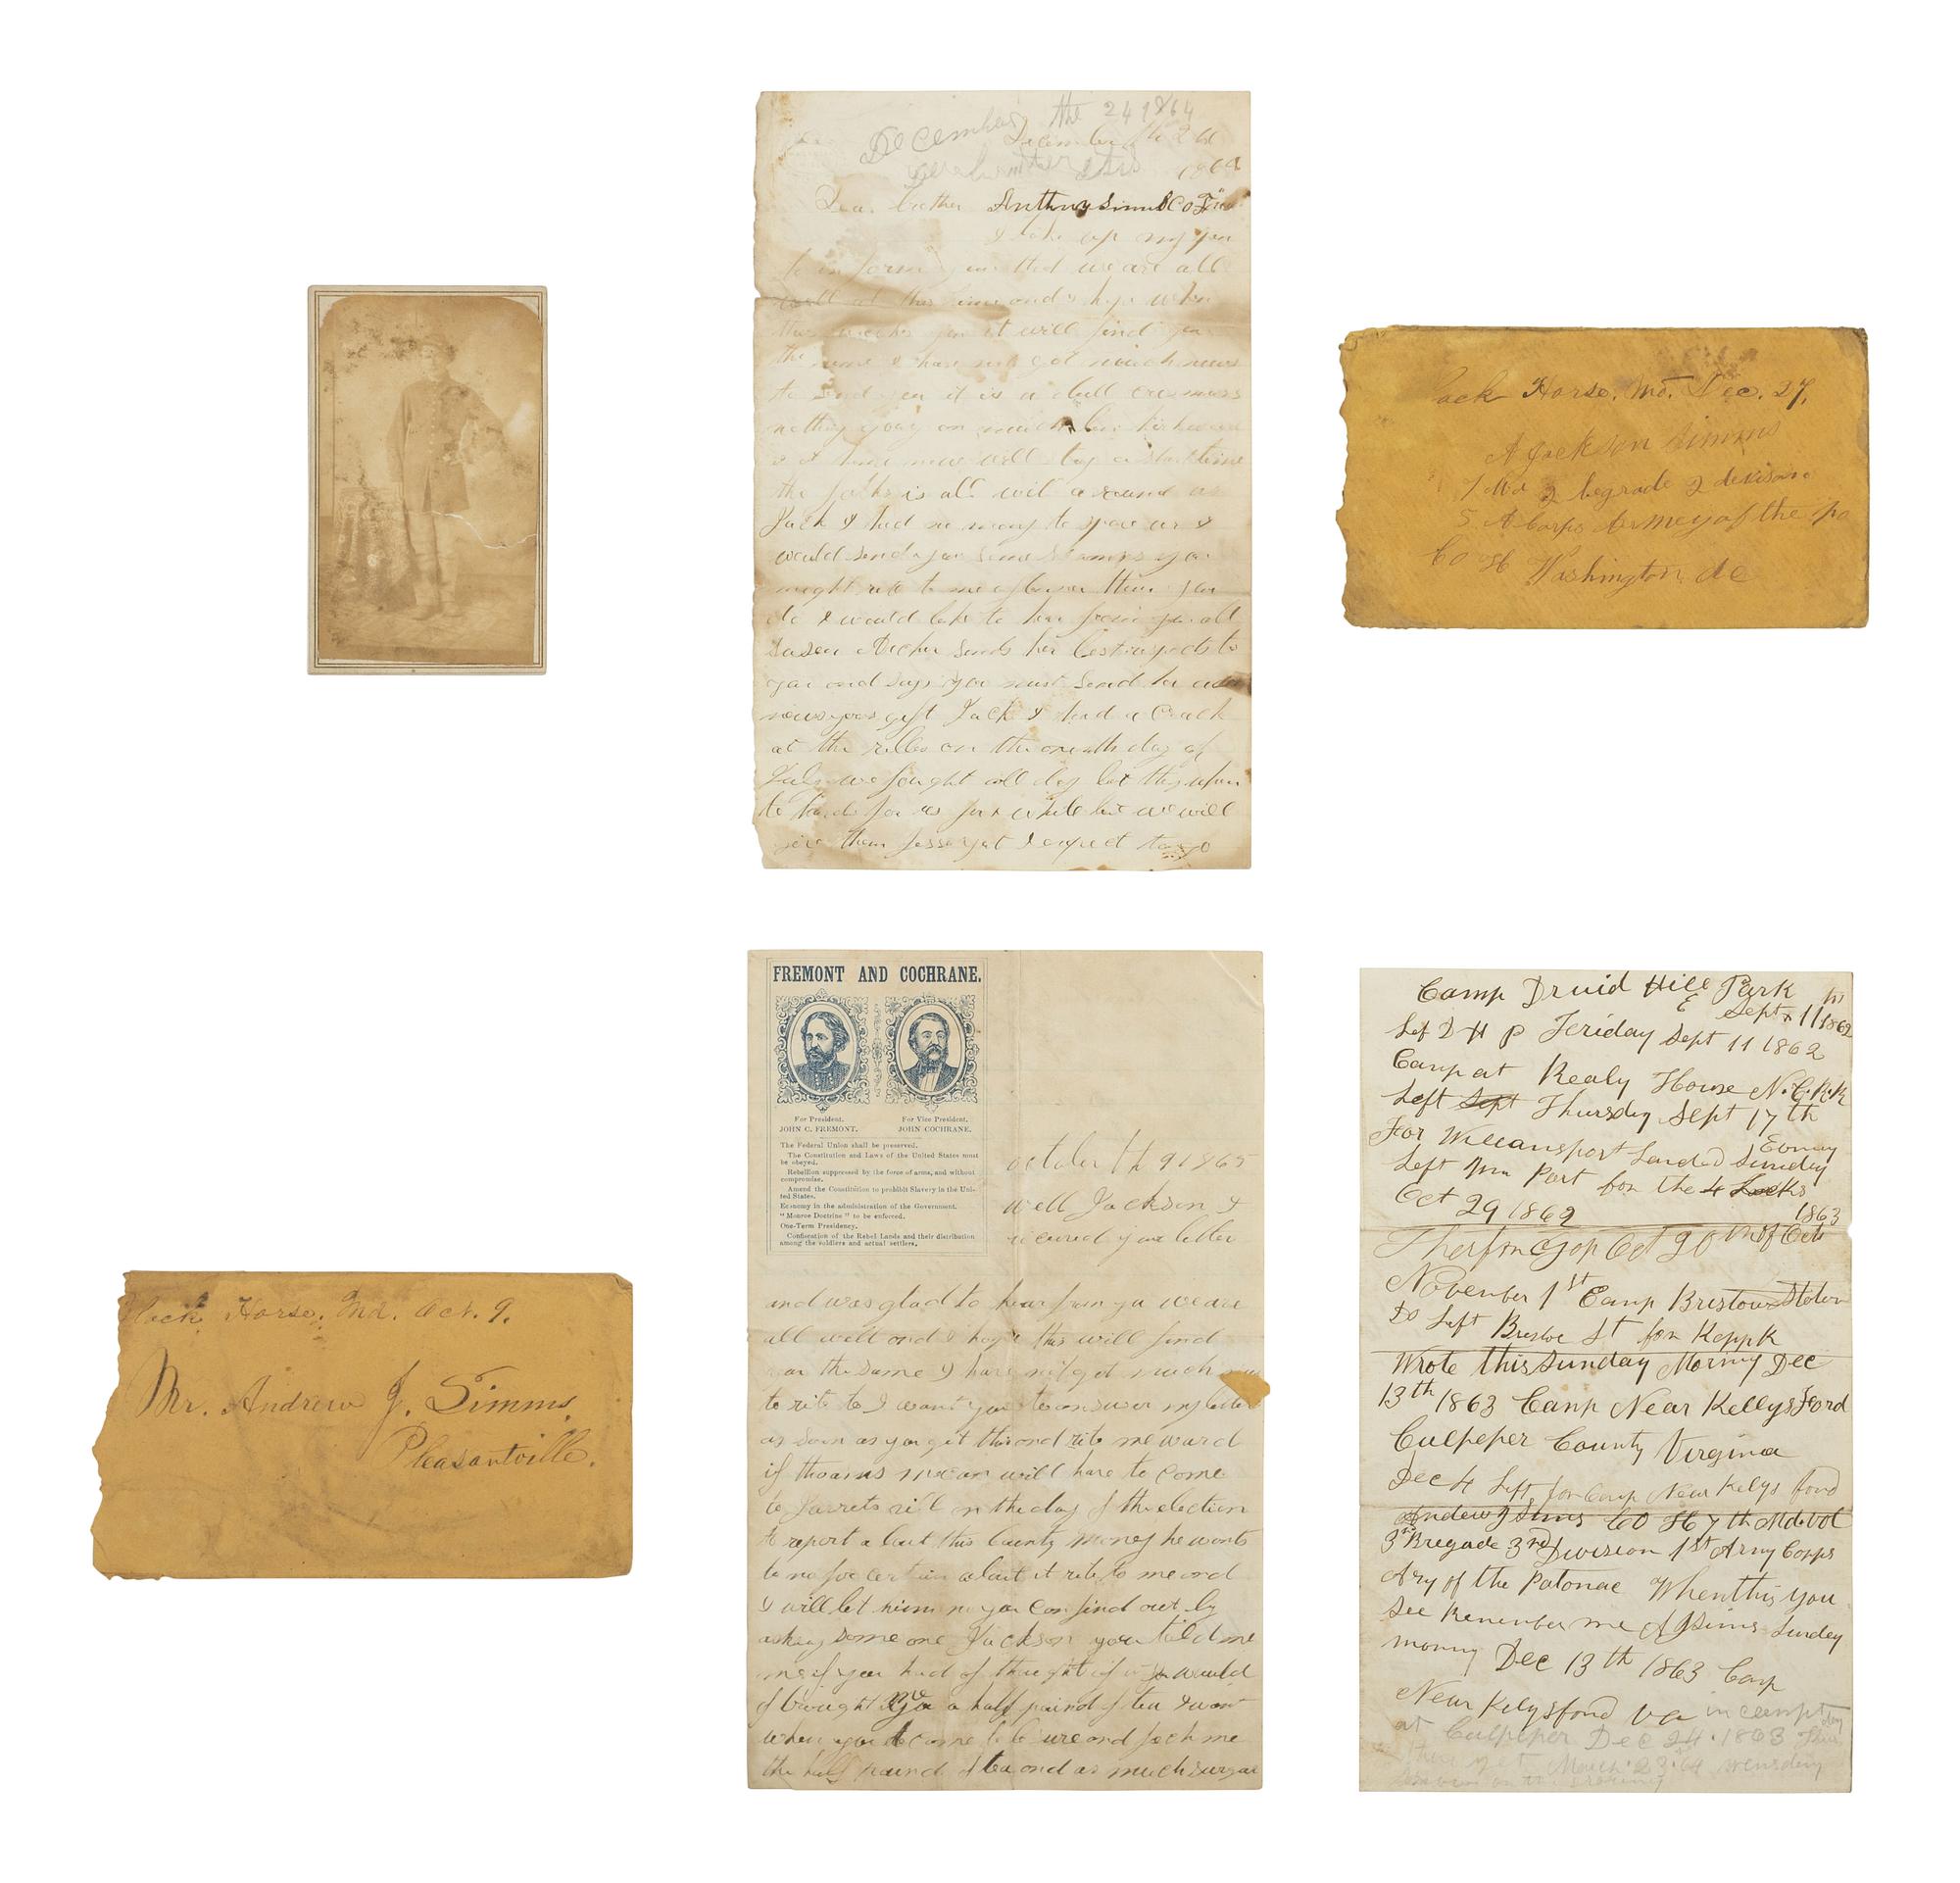 December the 24 1864
December the 24
1864
Dear brother Anthony Simms Co F
I take up my pen
to inform you that we are all
well at this time and I hope when
this reaches you it will find you
the same I have not got much news
to send you it is a dull
nothing going on much
the folks is all well around us
Jack I had no money to spare or I
would send you some stamps you
might rite to me oftener then you
do I would like to her from you all
Susen Archer sends her best respects to
you and says you must send her
newyears gift Jack I had a Crack
at the rebbs on the day of
we fought all day but they
to for us for a while but we will
give them jesse yet I expect to go
ack Horse, Md. Dec. 27,
A Jackson Simms
7 Md 2 begrade 2 devison
5 A Corps Armey of the po
Co H Washington dc
FREMONT AND COCHRANE.
For President, For Vice President,
JOHN C. FREMONT. JOHN COCHRANE.
The Federal Union shall be preserved.
The Constitution and Laws of the United States must
be obeyed.
Rebellion suppressed by the force of arms, and without
compromise.
Amend the Constitution to prohibit Slavery in the Uni-
ted States.
Economy in the administration of the Government.
"Monroe Doctrine" to be enforced.
One-Term Presidency.
Confiscation of the Rebel Lands and their distribution
among the soldiers and actual settlers.
october th 9 1865
well Jackson I
received your letter
and was glad to hear from you we are
all well and I hope this will find
you the same I have not got much
to rite to I want you to answer my letter
as soon as you get this and rite me ward
if thoams will have to come
to Jarrets on the day of the election
to report about this County money he wants
to no for certain about it rite to me and
I will let him no you can find out by
asking some one Jackson you told me
if you had of thought of it you would
of brought me a half paind of tea I want
when you come to be sure and fech me
the half paind of tea and as much surgar
lack Horse, Md. Oct. 9.
Mr. Andrew J. Simms,
Pleasantville.
Camp Druid Hill Park
Sept 11 1862
Lef D H P Friday Sept 11 1862
Camp at Realy House N.C.R.R
Left Sept Thursday Sept 17 th
For Williansport Landed Sunday Evning
Left Port for the 4 Locks
Oct 29 1862 1863
Oct 20 of Oct
November 1st Camp Bristow Station
Do Left Bristoe St for
Wrote this Sunday Morning Dec
13th 1863 Camp Near Kellys Ford
Culpeper County Virginia
Dec 4 Left for Camp Near Kelys ford
Andrew J Sims Co H 7 th Md Vol
3rd Bregade 3rd Division 1st Army Corps
Army of the Potomac When this you
See Remember me A J Sims Sunday
morning Dec 13 th 1863 Camp
Near Kelysford va in campt
at Culpeper Dec 24. 1863
yet March 23. 64 wensday